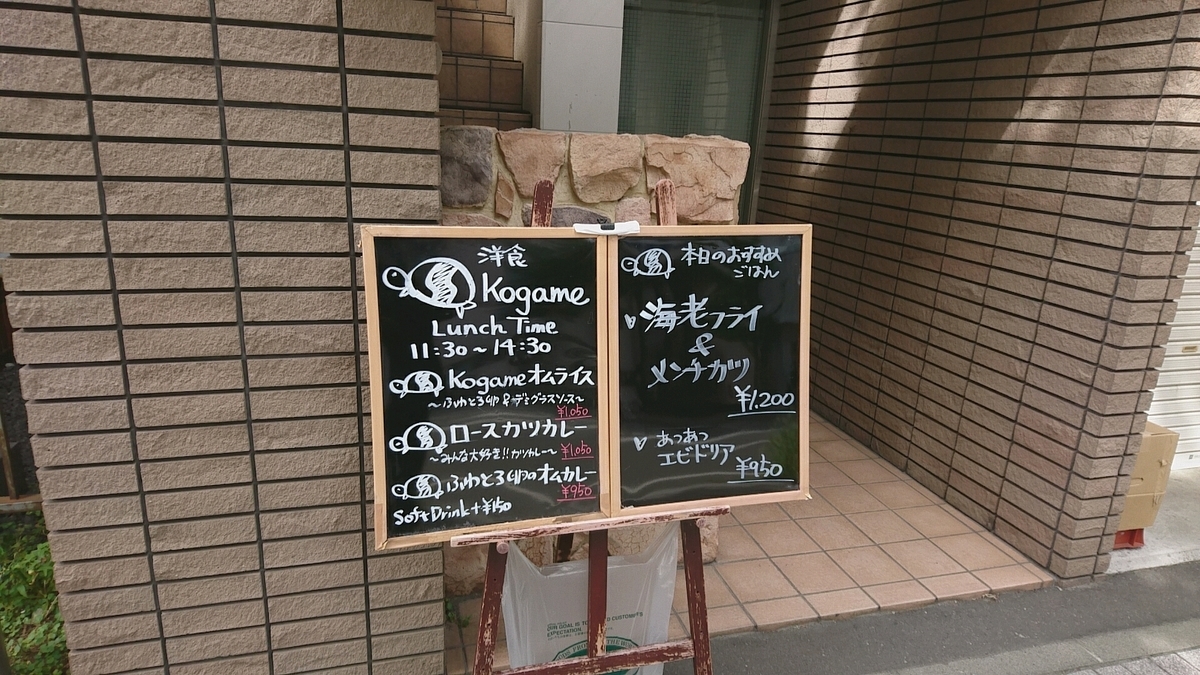 洋食
Kogame
Lunch Time
11:30～14:30
Kogameオムライス
～ふわとろ卵&デミグラスソース～
¥1,050
ロースカツカレー
～みんな大好き!!カツカレー～ ¥1,050
ふわとろ卵のオムカレー
¥950
Soft Drink+¥150
本日のおすすめ
ごはん
海老フライ
&
メンチカツ
¥1,200
あつあつ
エビドリア
¥950